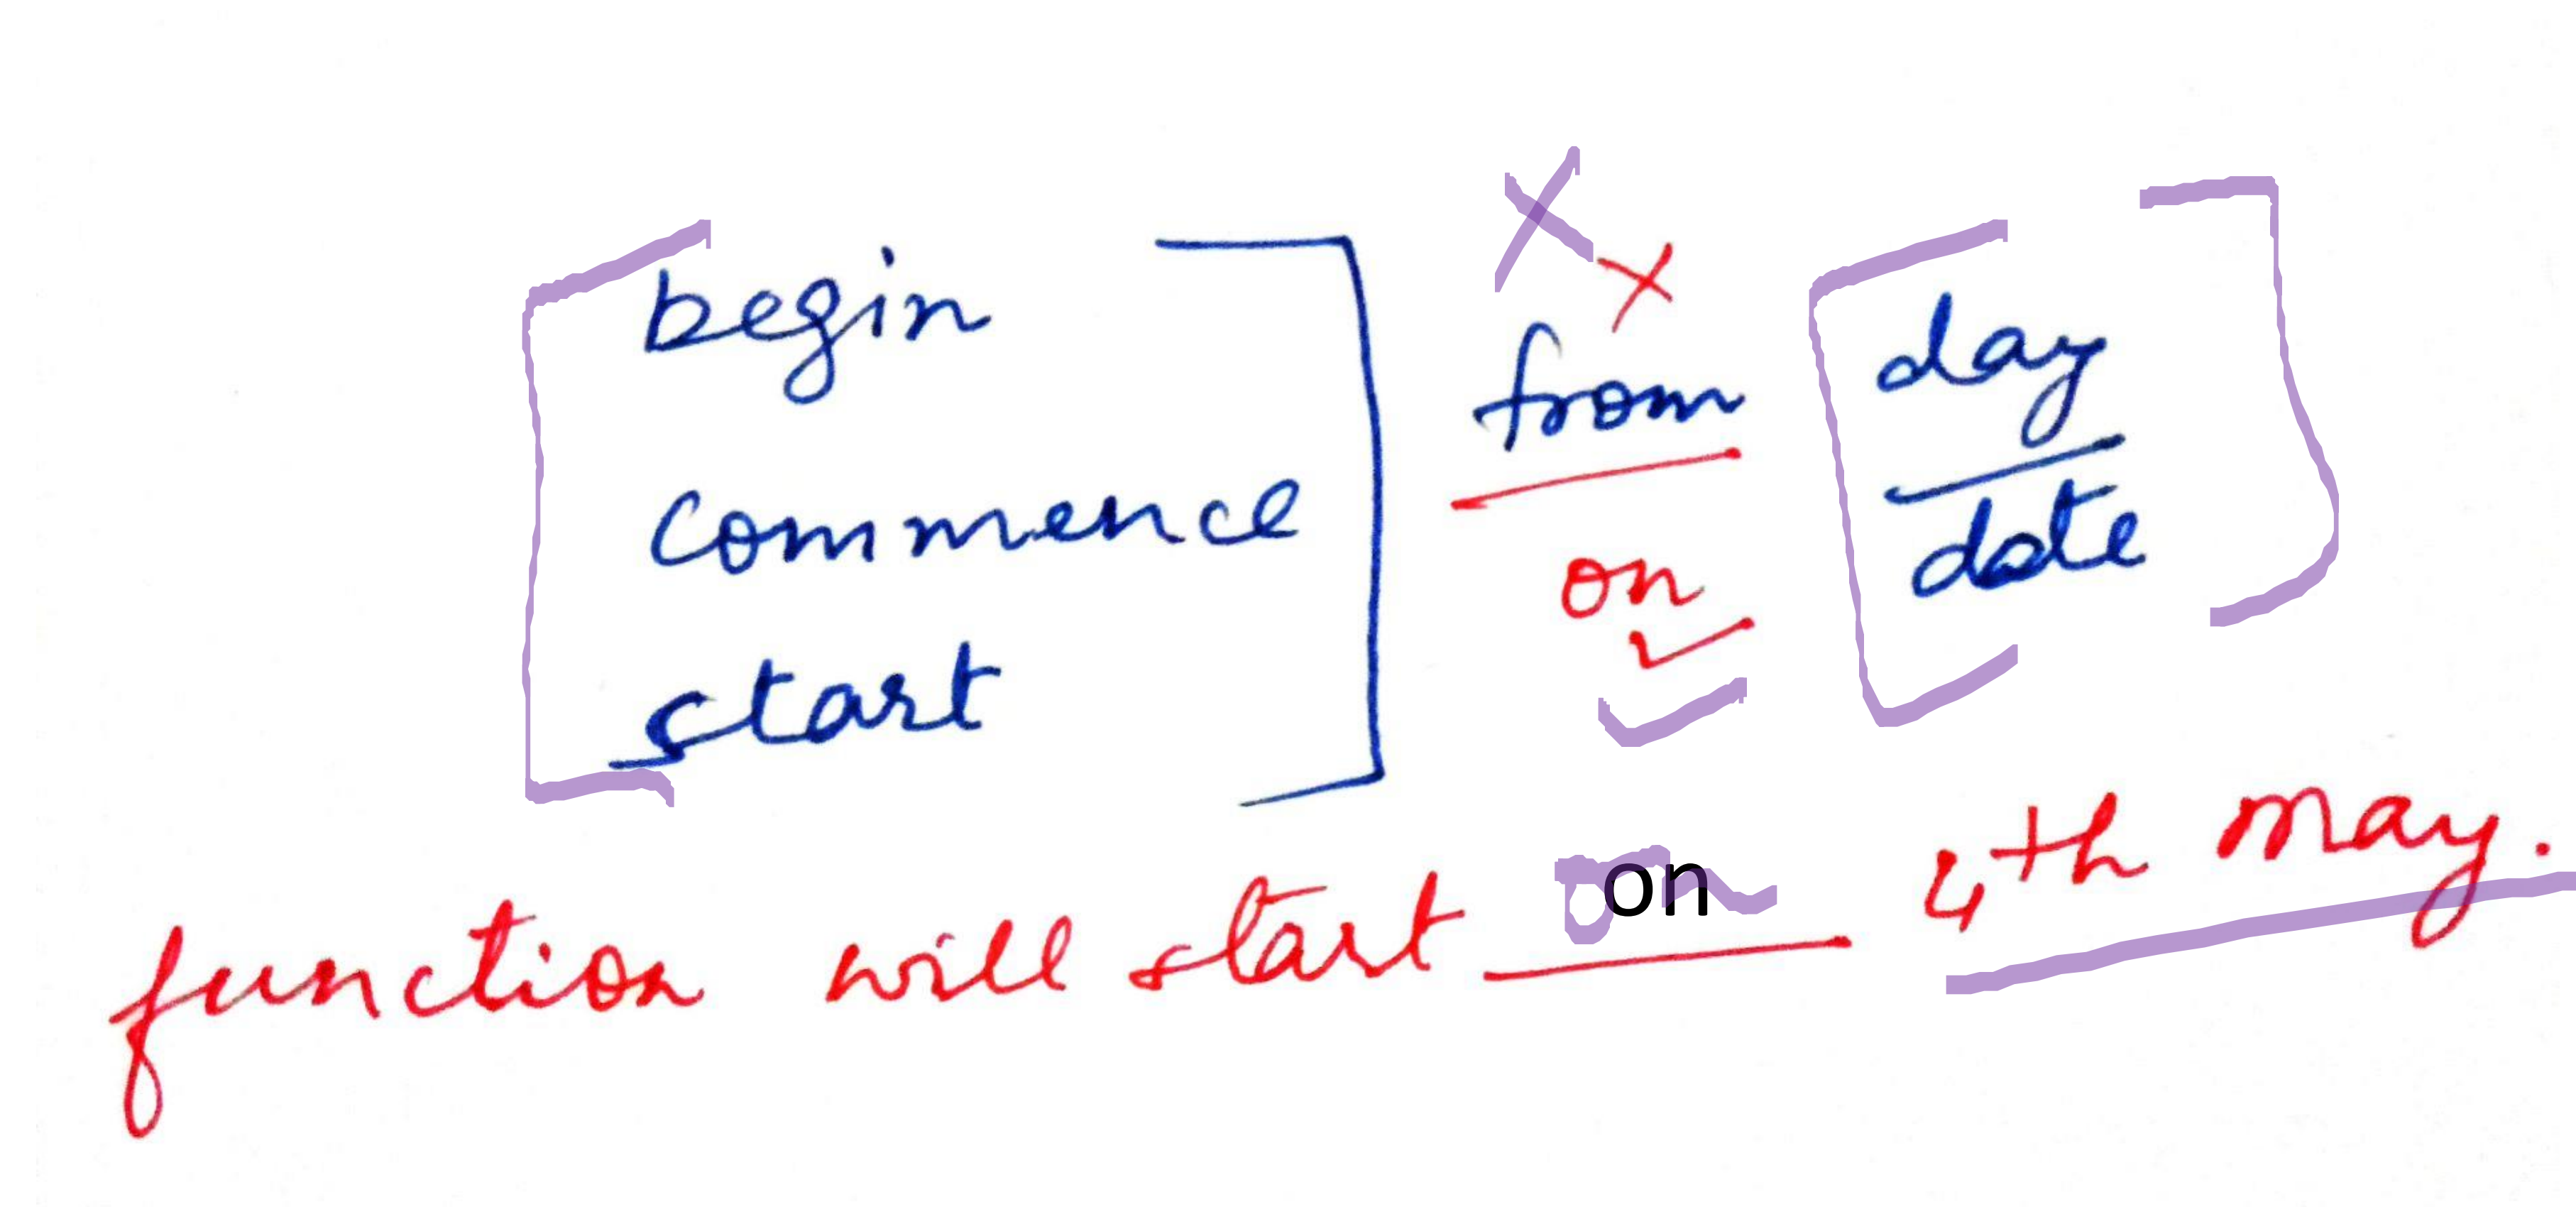 begin
commence
start
from
on
day
date
function will start on 4th may.